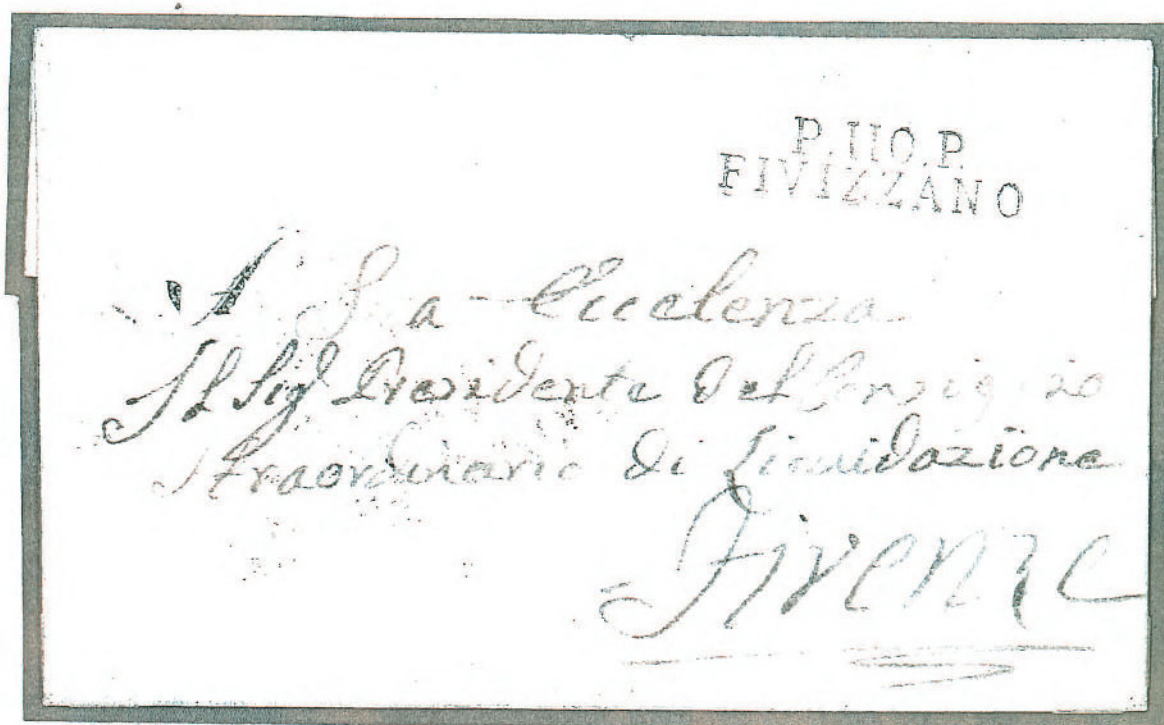 P.110.P.
FIVIZZANO
A S a Eccelenza
Il Sig Presidente Del Consiglio
Straordinario Di Liquidazione
Firenze